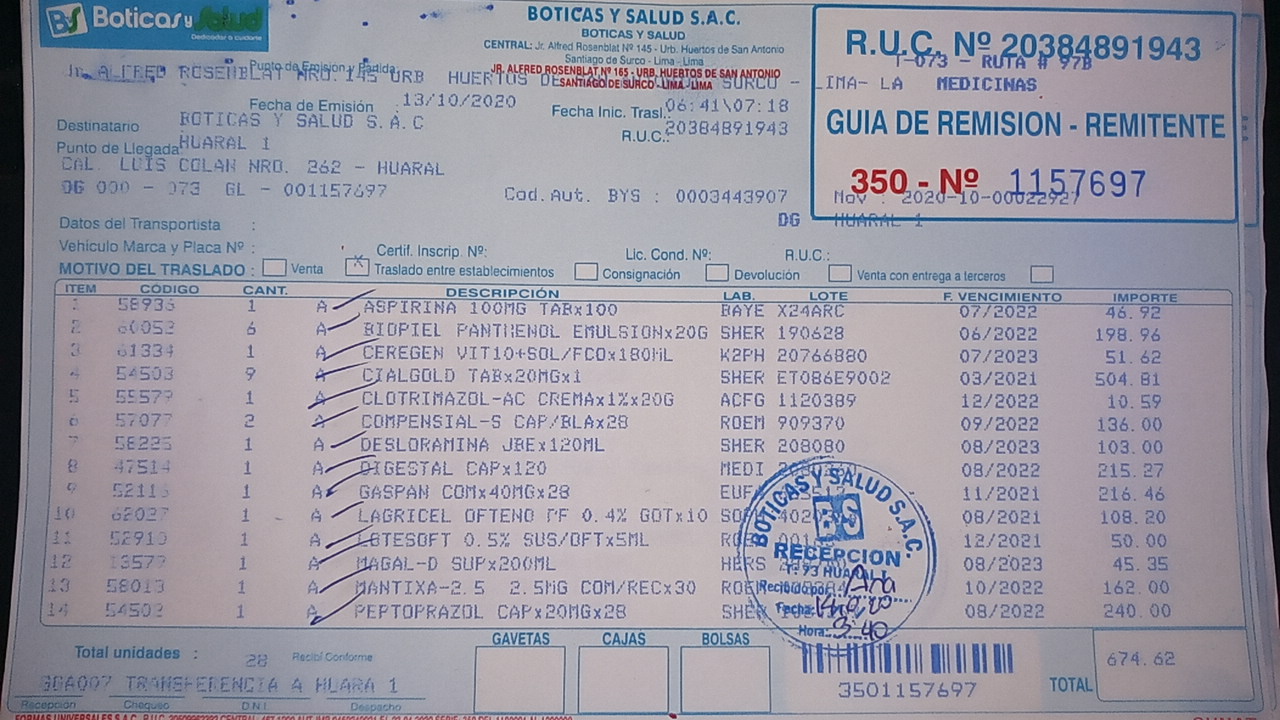 BS Boticas y Salud
Dedicados a cuidarte
BOTICAS Y SALUD S.A.C.
BOTICAS Y SALUD
CENTRAL: Jr. Alfred Rosenblat Nº 145 - Urb. Huertos de San Antonio
Santiago de Surco - Lima - Lima
JR. ALFRED ROSENBLAT Nº 165 - URB. HUERTOS DE SAN ANTONIO
SANTIAGO DE SURCO - LIMA - LIMA
R.U.C. Nº 20384891943
T-073 - RUTA # 97B
Punto de Emisión y Partida
Jr. ALFRED ROSENBLAT NRO. 145 URB HUERTOS DE SURCO - LIMA- LA MEDICINAS
GUIA DE REMISION - REMITENTE
350 - Nº 1157697
Fecha de Emisión 13/10/2020 Fecha Inic. Trasl.: 06:41\07:18
Destinatario BOTICAS Y SALUD S.A.C R.U.C.: 20384891943
Punto de Llegada HUARAL 1
CAL. LUIS COLAN NRO. 262 - HUARAL
DG 000 - 073 GL - 001157697 Cod.Aut. BYS : 0003443907 Mov : 2020-10-00022927
DG HUARAL 1
Datos del Transportista :
Vehiculo Marca y Placa Nº : Certif. Inscrip. Nº: Lic. Cond. Nº: R.U.C.:
MOTIVO DEL TRASLADO : Venta X Traslado entre establecimientos Consignación Devolución Venta con entrega a terceros
ITEM CÓDIGO CANT. DESCRIPCIÓN LAB. LOTE F. VENCIMIENTO IMPORTE
1 58936 1 A ASPIRINA 100MG TABx100 BAYE X24ARC 07/2022 46.92
2 60052 6 A BIOPIEL PANTHENOL EMULSIONx20G SHER 190628 06/2022 198.96
3 61334 1 A CEREGEN VIT10+SOL/FCOx180ML K2PH 20766880 07/2023 51.62
4 54503 9 A CIALGOLD TABx20MGx1 SHER ET086E9002 03/2021 504.81
5 55579 1 A CLOTRIMAZOL-AC CREMAx1%x20G ACFG 1120389 12/2022 10.59
6 57077 2 A COMPENSIAL-S CAP/BLAx28 ROEM 909370 09/2022 136.00
7 58225 1 A DESLORAMINA JBEx120ML SHER 208080 08/2023 103.00
8 47514 1 A DIGESTAL CAPx120 MEDI 08/2022 215.27
9 52115 1 A GASPAN COMx40MGx28 11/2021 216.46
10 62027 1 A LAGRICEL OFTENO PF 0.4% GOTx10 08/2021 108.20
11 52910 1 A LOTESOFT 0.5% SUS/OFTx5ML 12/2021 50.00
12 13579 1 A MAGAL-D SUPx200ML HERS 08/2023 45.35
13 58013 1 A MANTIXA-2.5 2.5MG COM/RECx30 10/2022 162.00
14 54502 1 A PEPTOPRAZOL CAPx20MGx28 08/2022 240.00
BOTICAS Y SALUD S.A.C.
BS
RECEPCION
T: 93 HUARAL I
Recibido por: Ana
Fecha:
Hora: 3:40
GAVETAS CAJAS BOLSAS
Total unidades : 28 Recibí Conforme
GOA007 TRANSFERENCIA A HUARA 1
Recepción Chequeo D.N.I. Despacho
3501157697
TOTAL 674.62